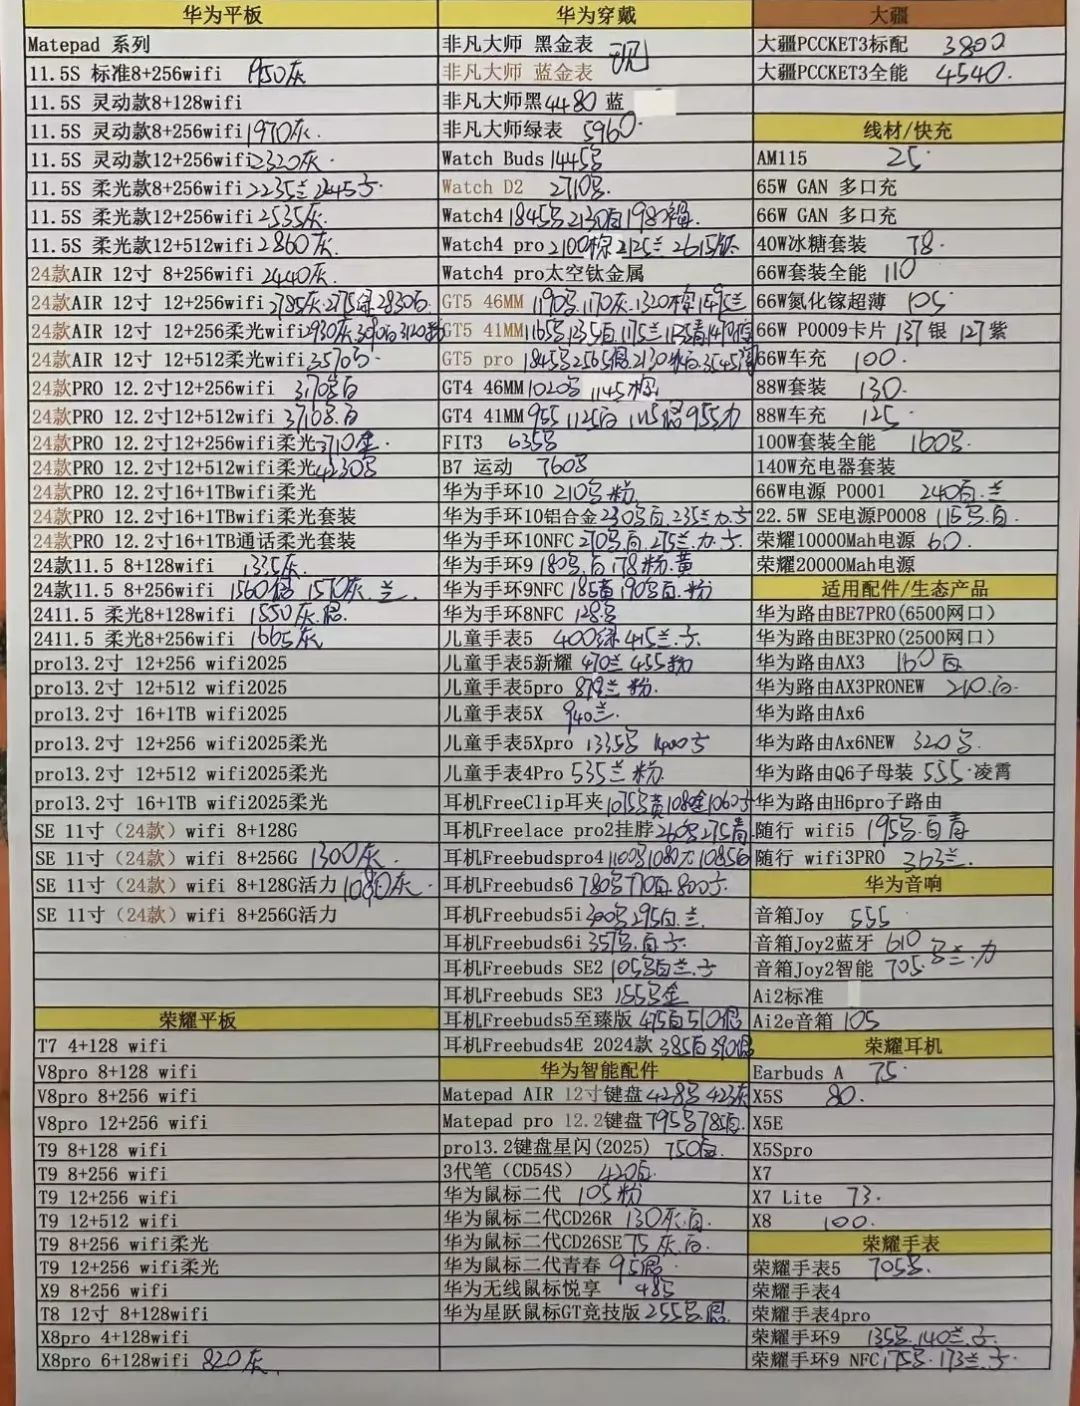 华为平板
Matepad 系列
11.5S 标准8+256wifi 1950灰
11.5S 灵动款8+128wifi
11.5S 灵动款8+256wifi 1970灰.
11.5S 灵动款12+256wifi 2320灰.
11.5S 柔光款8+256wifi 2235兰 2245
11.5S 柔光款12+256wifi 2535灰
11.5S 柔光款12+512wifi 2860灰.
24款AIR 12寸 8+256wifi 2440灰.
24款AIR 12寸 12+256wifi 2785灰.2775绿 2830白.
24款AIR 12寸 12+256柔光wifi
24款AIR 12寸 12+512柔光wifi 3570
24款PRO 12.2寸12+256wifi
24款PRO 12.2寸12+512wifi
24款PRO 12.2寸12+256wifi柔光 3710金.
24款PRO 12.2寸12+512wifi柔光
24款PRO 12.2寸16+1TBwifi柔光
24款PRO 12.2寸16+1TBwifi柔光套装
24款PRO 12.2寸16+1TB通话柔光套装
24款11.5 8+128wifi 1335灰.
24款11.5 8+256wifi 1560 1570灰.兰.
2411.5 柔光8+128wifi 1550灰.
2411.5 柔光8+256wifi 1665灰
pro13.2寸 12+256 wifi2025
pro13.2寸 12+512 wifi2025
pro13.2寸 16+1TB wifi2025
pro13.2寸 12+256 wifi2025柔光
pro13.2寸 12+512 wifi2025柔光
pro13.2寸 16+1TB wifi2025柔光
SE 11寸（24款）wifi 8+128G
SE 11寸（24款）wifi 8+256G 1300灰.
SE 11寸（24款）wifi 8+128G活力 1080灰.
SE 11寸（24款）wifi 8+256G活力
荣耀平板
T7 4+128 wifi
V8pro 8+128 wifi
V8pro 8+256 wifi
V8pro 12+256 wifi
T9 8+128 wifi
T9 8+256 wifi
T9 12+256 wifi
T9 12+512 wifi
T9 8+256 wifi柔光
T9 12+256 wifi柔光
X9 8+256 wifi
T8 12寸 8+128wifi
X8pro 4+128wifi
X8pro 6+128wifi 820灰.
华为穿戴
非凡大师 黑金表 现
非凡大师 蓝金表
非凡大师黑4480 蓝
非凡大师绿表 5960.
Watch Buds 1445
Watch D2 2710
Watch4 1845 2130白 1980
Watch4 pro 2100棕 2125兰 2615
Watch4 pro太空钛金属
GT5 46MM
GT5 41MM
GT5 pro
GT4 46MM 1020 1145棕
GT4 41MM 955 1125白
FIT3 635
B7 运动 760
华为手环10 210 粉
华为手环10铝合金 230 白.235兰
华为手环10NFC 270 白.275兰
华为手环9 180 白 178粉.黄
华为手环9NFC 185黄 190 白.粉
华为手环8NFC 128
儿童手表5 400绿 415兰.
儿童手表5新耀 470兰 455粉
儿童手表5pro 879兰 粉.
儿童手表5X 940兰.
儿童手表5Xpro 1335 1400
儿童手表4Pro 535兰 粉.
耳机FreeClip耳夹
耳机Freelace pro2挂脖 260 275青
耳机Freebudspro4
耳机Freebuds6 780 770白.800
耳机Freebuds5i 300 295白.兰.
耳机Freebuds6i 357 白
耳机Freebuds SE2 105 白兰.
耳机Freebuds SE3 155 金
耳机Freebuds5至臻版 475白510
耳机Freebuds4E 2024款 385白390
华为智能配件
Matepad AIR 12寸键盘 428 423灰
Matepad pro 12.2键盘 795 785白.
pro13.2键盘星闪(2025) 750白.
3代笔（CD54S） 420白.
华为鼠标二代 105粉
华为鼠标二代CD26R 130灰.白.
华为鼠标二代CD26SE 75灰.白.
华为鼠标二代青春 95
华为无线鼠标悦享 48
华为星跃鼠标GT竞技版 255
大疆
大疆PCCKET3标配 3800
大疆PCCKET3全能 4540.
线材/快充
AM115 25.
65W GAN 多口充
66W GAN 多口充
40W冰糖套装 78.
66W套装全能 110
66W氮化镓超薄 105
66W P0009卡片 137 银 127 紫
66W车充 100.
88W套装 130.
88W车充 125.
100W套装全能 160
140W充电器套装
66W电源 P0001 240白.兰
22.5W SE电源P0008 115 白.
荣耀10000Mah电源 60.
荣耀20000Mah电源
适用配件/生态产品
华为路由BE7PRO(6500网口)
华为路由BE3PRO(2500网口)
华为路由AX3 160 白
华为路由AX3PRONEW 210.白.
华为路由Ax6
华为路由Ax6NEW 320
华为路由Q6子母装 555.凌霄
华为路由H6pro子路由
随行 wifi5 195 白青
随行 wifi3PRO 363兰.
华为音响
音箱Joy 555
音箱Joy2蓝牙 610
音箱Joy2智能 705
Ai2标准
Ai2e音箱 105
荣耀耳机
Earbuds A 75.
X5S 80.
X5E
X5Spro
X7
X7 Lite 73.
X8 100.
荣耀手表
荣耀手表5 705
荣耀手表4
荣耀手表4pro
荣耀手环9 135 140兰.
荣耀手环9 NFC 175 173兰.